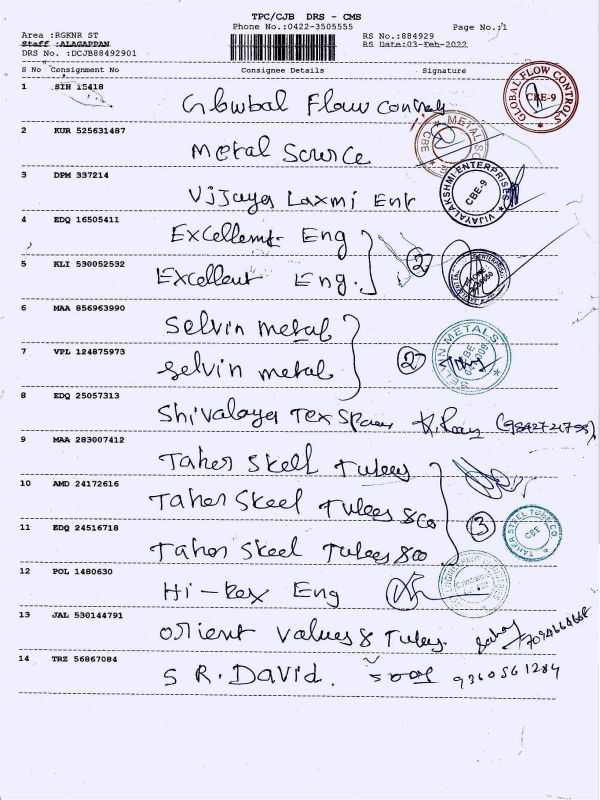 TPC/CJB DRS - CMS
Phone No.:0422-3505555
Page No.:1
Area :RGKNR ST
RS No.:884929
Staff :ALAGAPPAN
RS Date:03-Feb-2022
DRS No. :DCJB88492901
S No Consignment No Consignee Details Signature
1 SIH 15418 Glowbal Flow controls
GLOBAL FLOW CONTROLS CBE-9
2 KUR 525631487 Metal Source
METAL CBE
3 DPM 337214 Vijjaya Laxmi Ent
VIJAYALAKSHMI ENTERPRISES CBE-9
4 EDQ 16505411 Excellent Eng
2
5 KLI 530052532 Excellent Eng.
6 MAA 856963990 Selvin metal
7 VPL 124875973 Selvin metal
2
SELVIN METALS CBE
8 EDQ 25057313 Shivalaya Tex Spares
9 MAA 283007412 Taher Skell Tubes
10 AMD 24172616 Taher Skeel Tubes &co
3
11 EDQ 24516718 Taher Skeel Tubes &co
TAHER STEEL TUBE CO CBE
12 POL 1480630 Hi-Rex Eng
13 JAL 530144791 Orient Values & Tubes.
14 TRZ 56867084 S R. David.
9360561284